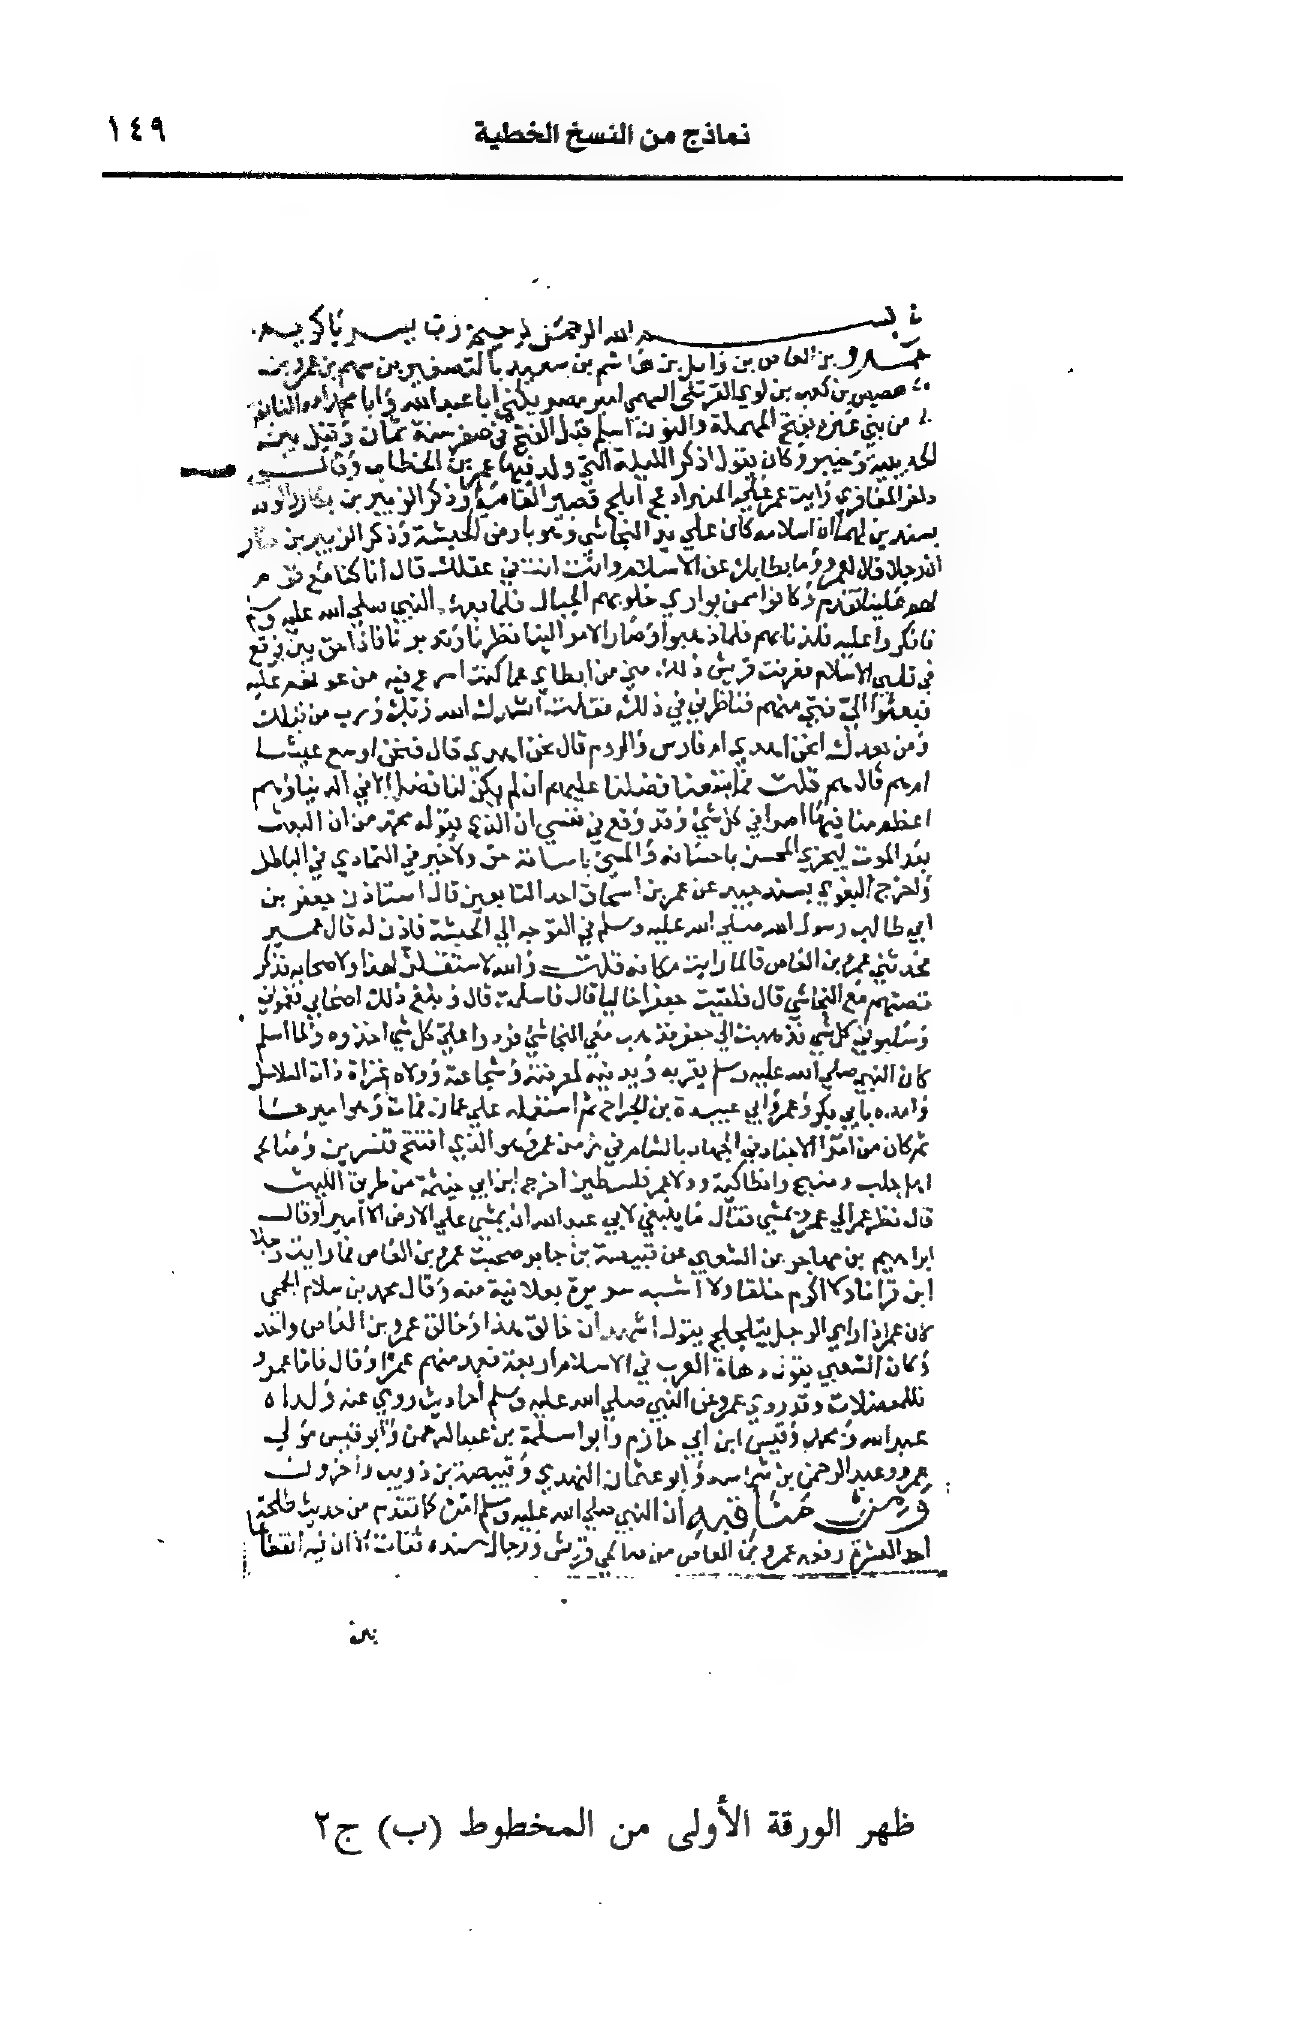 نماذج من النسخ الخطية
١٤٩
بسم الله الرحمن الرحيم رب يسر يا كريم
عمرو بن العاص بن وايل بن هاشم بن سعيد بالتصغير بن سهم بن عمرو بن
هصيص بن كعب بن لوي القرشي السهمي امير مصر يكني ابا عبد الله و ابا محمد امه النابغة
من بني عنزة بفتح المهملة والنون اسلم قبل الفتح في صفر سنة ثمان وقيل بين
الحديبية وخيبر وكان يقول اذكر الليلة التي ولد فيها عمر بن الخطاب وقال
المعافري رايت عمرو علي المنبر ادعج ابلج قصير القامة وذكر الزبير بن بكار
ان اسلامه كان علي يد النجاشي وهو بارض الحبشة وذكر الزبير بن بكار
ان رجلا قال لعمرو وما بطا بك عن الاسلام وانت انت في عقلك قال انا كنا مع قوم
لهم علينا تقدم وكانوا ممن يواري حلومهم الجبال فلما بعث النبي صلي الله عليه وسلم
فانكروا عليه فلذنا بهم فلما ذهبوا وصار الامر الينا نظرنا وتدبرنا فاذا حق بين فوقع
في قلبي الاسلام فعرفت قريش ذلك مني من ابطاي عما كنت اسرع فيه من عونهم عليه
فبعثوا الي فتي منهم فناظرني في ذلك فقلت انشدك الله ربك ورب من قبلك
ومن بعدك انحن اهدي ام فارس والروم قال نحن اهدي قال فنحن اوسع عيشا
ام هم قال هم قلت فما ينفعنا فضلنا عليهم ان لم يكن لنا فضل الا في الدنيا وهم
اعظم منا فيها امرا في كل شي وقد وقع في نفسي ان الذي يقوله محمد من ان البعث
بعد الموت ليجزي المحسن باحسانه والمسي باساته حق ولا خير في التمادي في الباطل
واخرج البغوي بسند جيد عن عمر بن اسحاق احد التابعين قال استاذن جعفر بن
ابي طالب رسول الله صلي الله عليه وسلم في التوجه الي الحبشة فاذن له قال عمير
فحدثني عمرو بن العاص قال لما رايت مكانه قلت والله لاستقلن لهذا ولاصحابه فذكر
قصتهم مع النجاشي قال فلقيت جعفرا خاليا قال فاسلمت قال وبلغ ذلك اصحابي فغموني
وسلبوني كل شي فذهبت الي جعفر فذهب معي النجاشي فردوا علي كل شي اخذوه ولما اسلم
كان النبي صلي الله عليه وسلم يقربه ويدنيه لمعرفته وشجاعته وولاه غزاة ذات السلاسل
وامده بابي بكر وعمر وابي عبيدة بن الجراح ثم استعمله علي عمان فمات وهو اميرها
ثم كان من امرا الاجناد في الجهاد بالشام في زمن عمر وهو الذي افتتح قنسرين وصالح
اهل حلب ومنبج وانطاكية وولاه عمر فلسطين اخرج ابن ابي خيثمة من طريق الليث
قال نظر عمر الي عمرو يمشي فقال ما ينبغي لابي عبد الله ان يمشي علي الارض الا اميرا وقال
ابراهيم بن مهاجر عن الشعبي عن قبيصة بن جابر صحبت عمرو بن العاص فما رايت رجلا
ابن قرانا ولا اكرم خلقا ولا اشبه سريرة بعلانية منه وقال محمد بن سلام الجمحي
كان عمر اذا راي الرجل يتلجلج يقول اشهد ان خالق هذا وخالق عمرو بن العاص واحد
وكان الشعبي يقول دهاة العرب في الاسلام اربعة فعد منهم عمرا وقال فاما عمرو
فللمعضلات وقد روي عمرو عن النبي صلي الله عليه وسلم احاديث روي عنه ولداه
عبد الله ومحمد وقيس ابن ابي حازم وابو سلمة بن عبد الرحمن وابو قيس مولي
عمرو وعبد الرحمن بن شماسه وابو عثمان النهدي وقبيصة بن ذويب واخرون
ومن مناقبه ان النبي صلي الله عليه وسلم كما تقدم من حديث طلحة
احد العشرة رفعه عمرو بن العاص من صالحي قريش ورجال سنده ثقات الا ان فيه انقطاعا
بين
ظهر الورقة الأولى من المخطوط (ب) ج٢